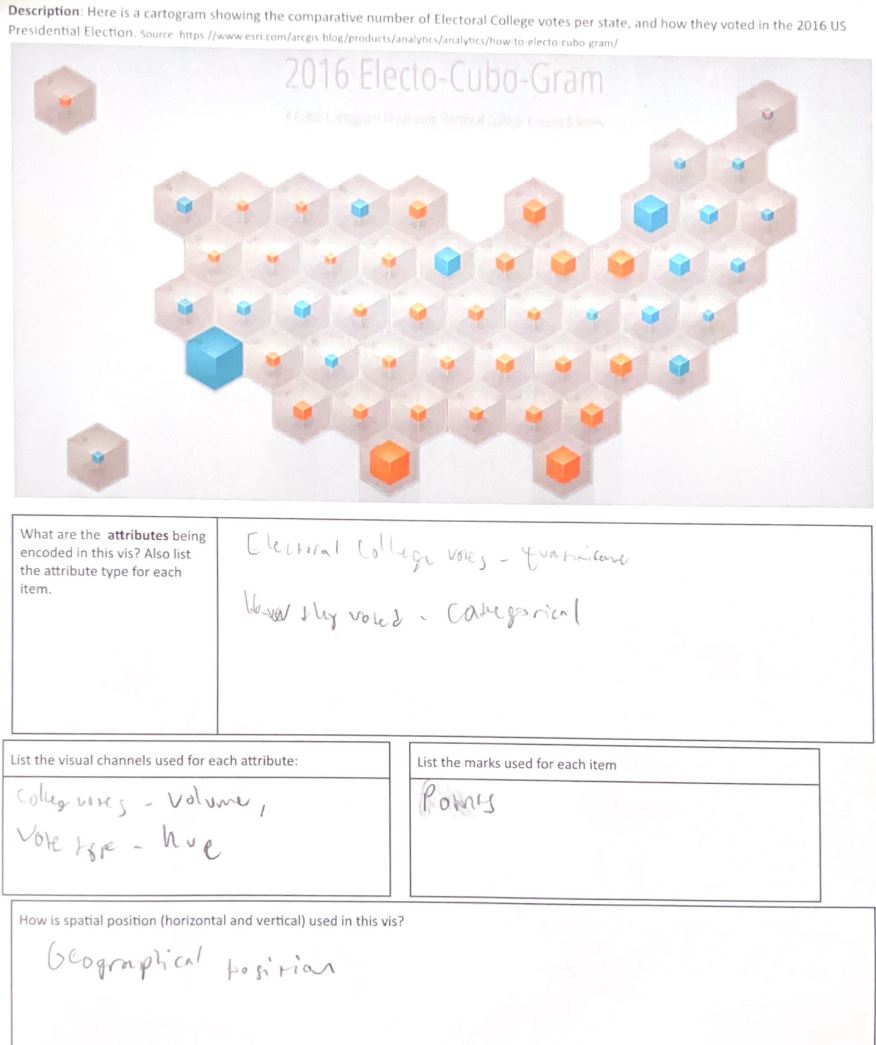 Description: Here is a cartogram showing the comparative number of Electoral College votes per state, and how they voted in the 2016 US
Presidential Election. Source: https://www.esri.com/arcgis-blog/products/analytics/analytics/how-to-electo-cubo-gram/
2016 Electo-Cubo-Gram
A Cubic Cartogram Illustrating Electoral College Counts & Votes
What are the attributes being
encoded in this vis? Also list
the attribute type for each
item.
Electoral College votes - 
How they voted - Categorical
List the visual channels used for each attribute:
College votes - Volume,
Vote type - hue
List the marks used for each item
Points
How is spatial position (horizontal and vertical) used in this vis?
Geographical position